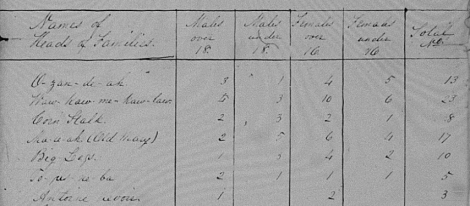 Names of Males Males Females Females Total
Heads of Families. over under over under No.
18. 18. 16. 16
O-zan-de-ak 3 1 4 5 13
5 3 10 6 23
Corn Stalk. 2 3 2 1 8
(Old Mary) 2 5 6 4 17
Big Legs. 1 3 4 2 10
2 1 1 1 5
Antoine 1 2 3